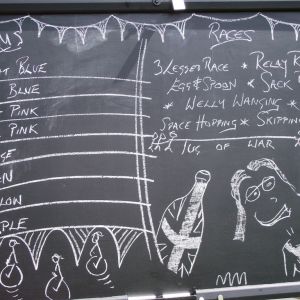 MS
T BLUE
BLUE
PINK
PINK
GE
EN
LON
PLE
RACES
3 LEGGED RACE * RELAY R
EGG & SPOON * SACK
* WELLY WANGING *
SPACE HOPPING * SKIPPIN
TUG OF WAR